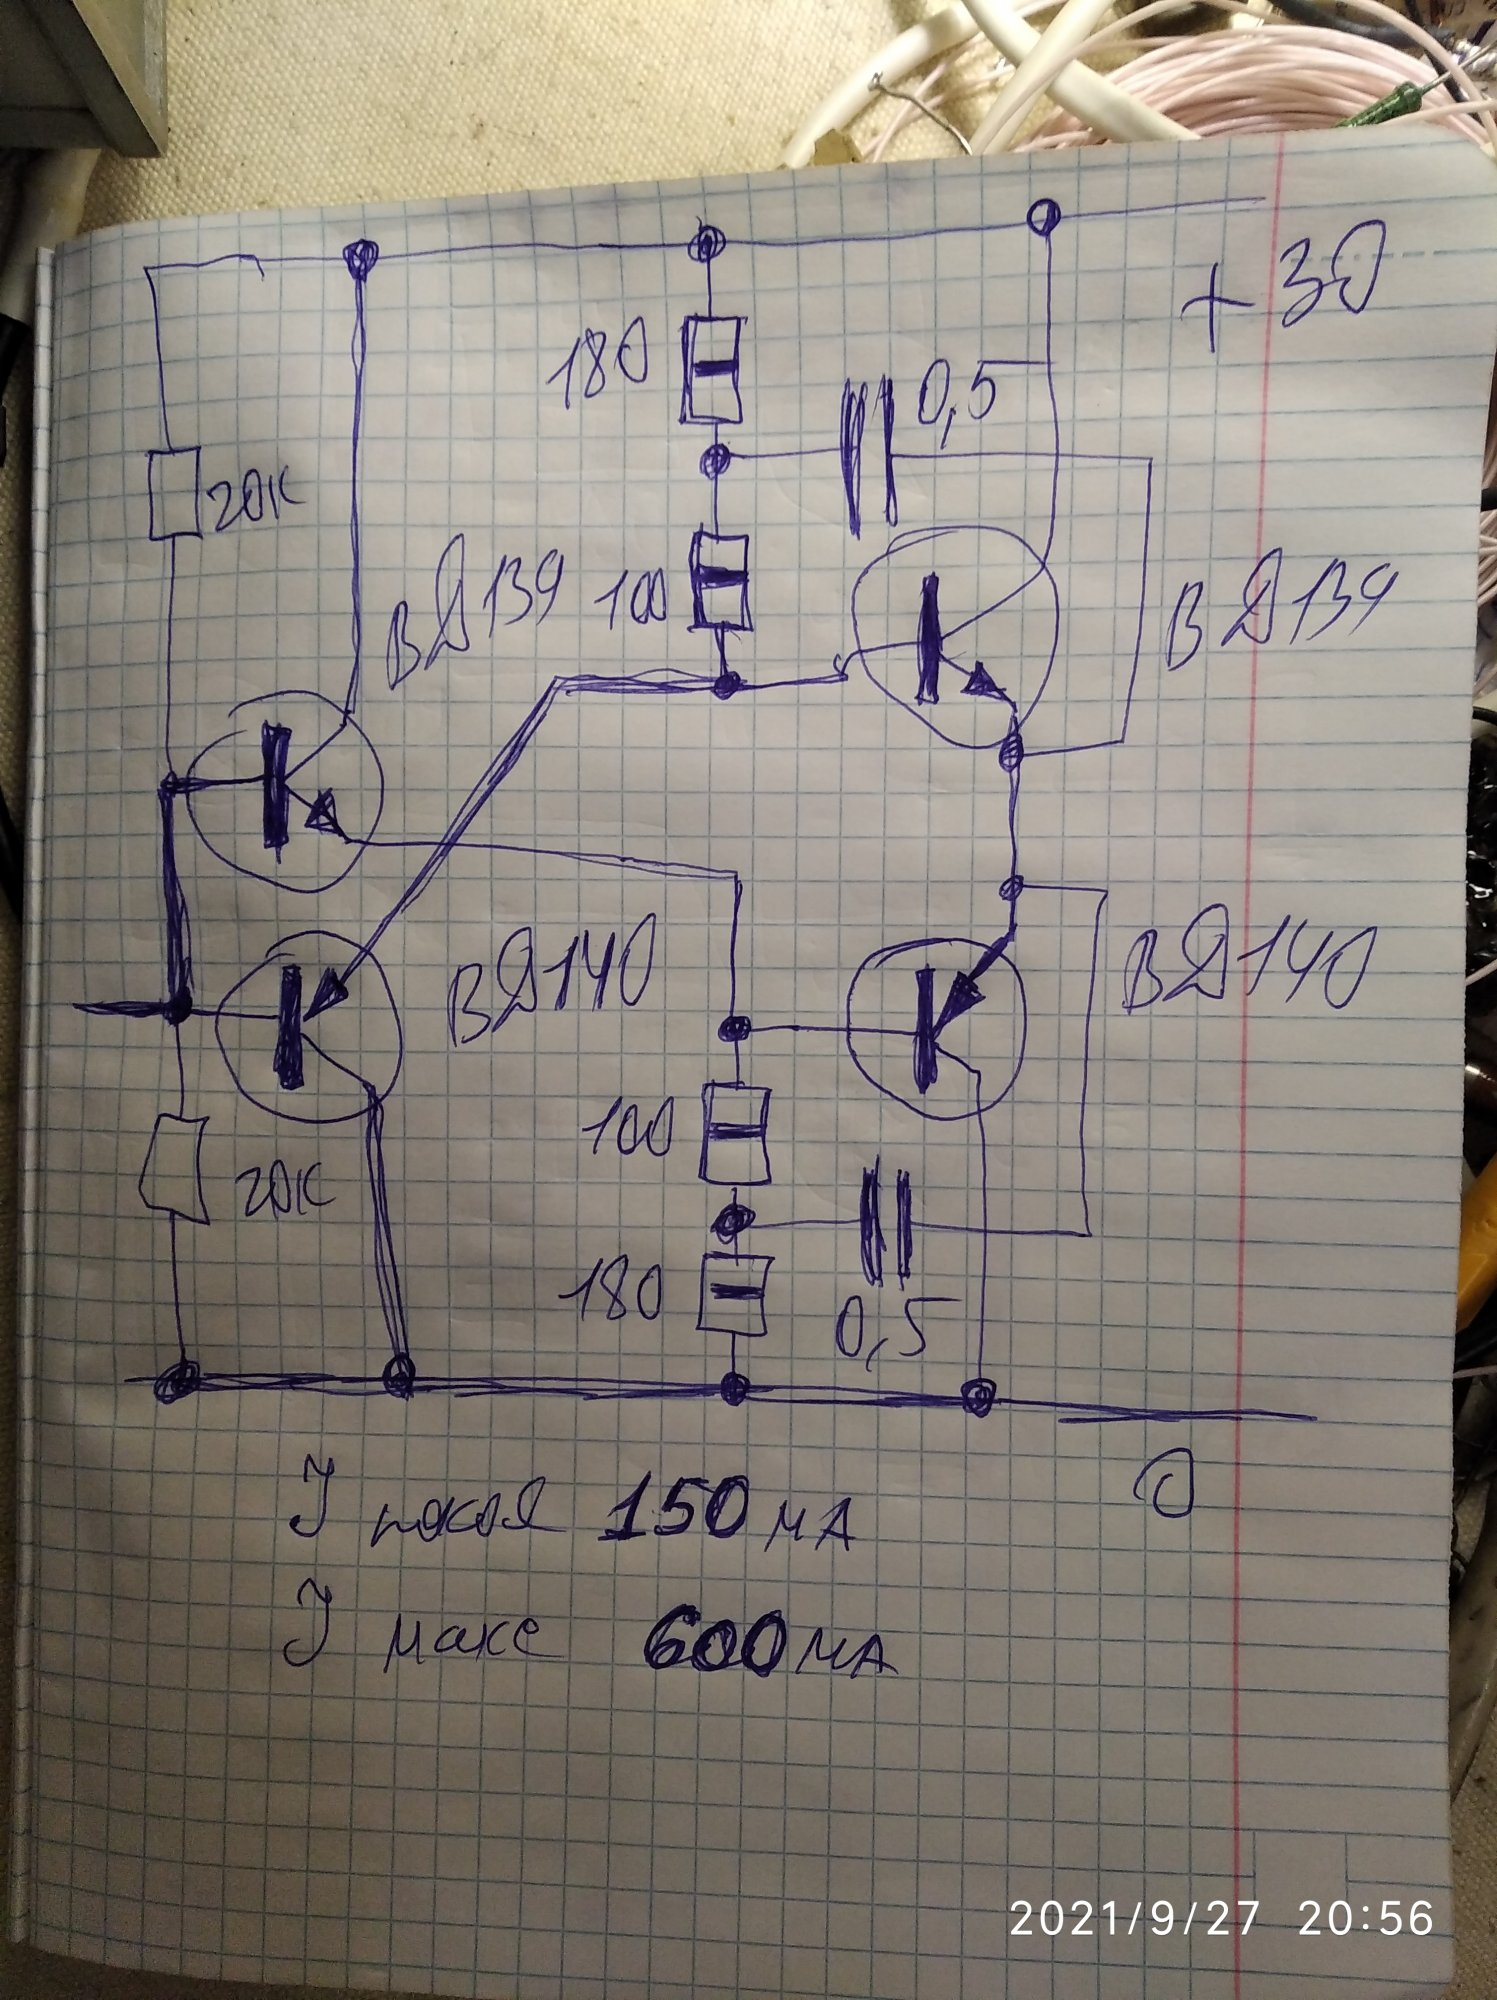 +30
180
0,5
20К
ВД139
100
ВД139
ВД140
ВД140
100
20К
180
0,5
0
I покоя 150 мА
I макс 600 мА
2021/9/27 20:56